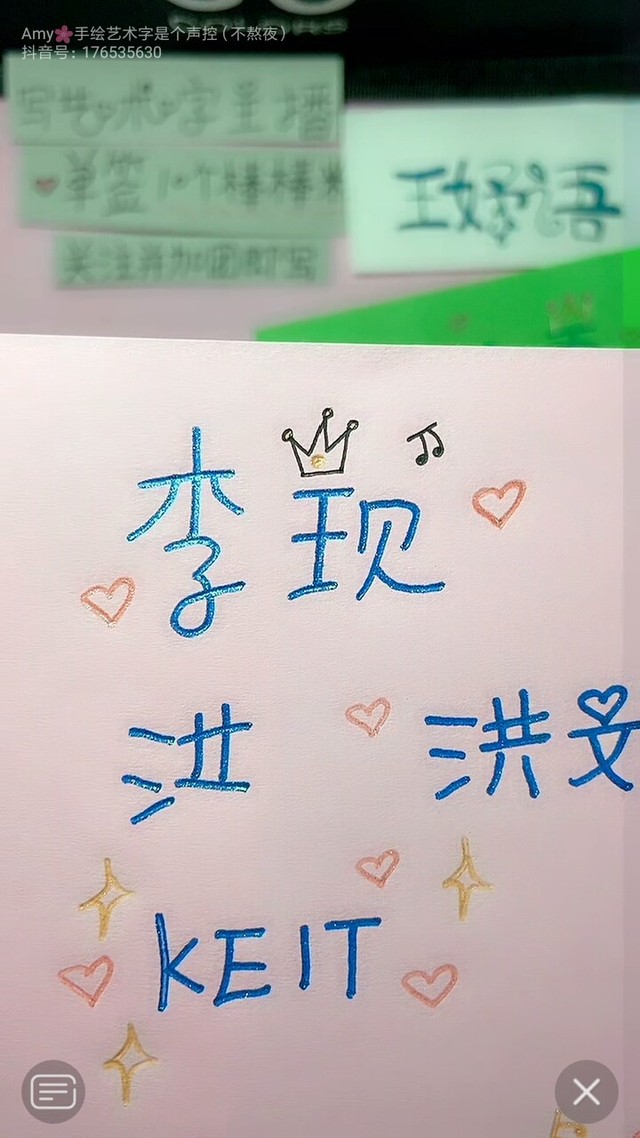 Amy🌸手绘艺术字是个声控（不熬夜）
抖音号：176535630
写艺术字主播
单签10个棒棒
关注并加团即写
王妤语
李现
洪 洪文
KEIT